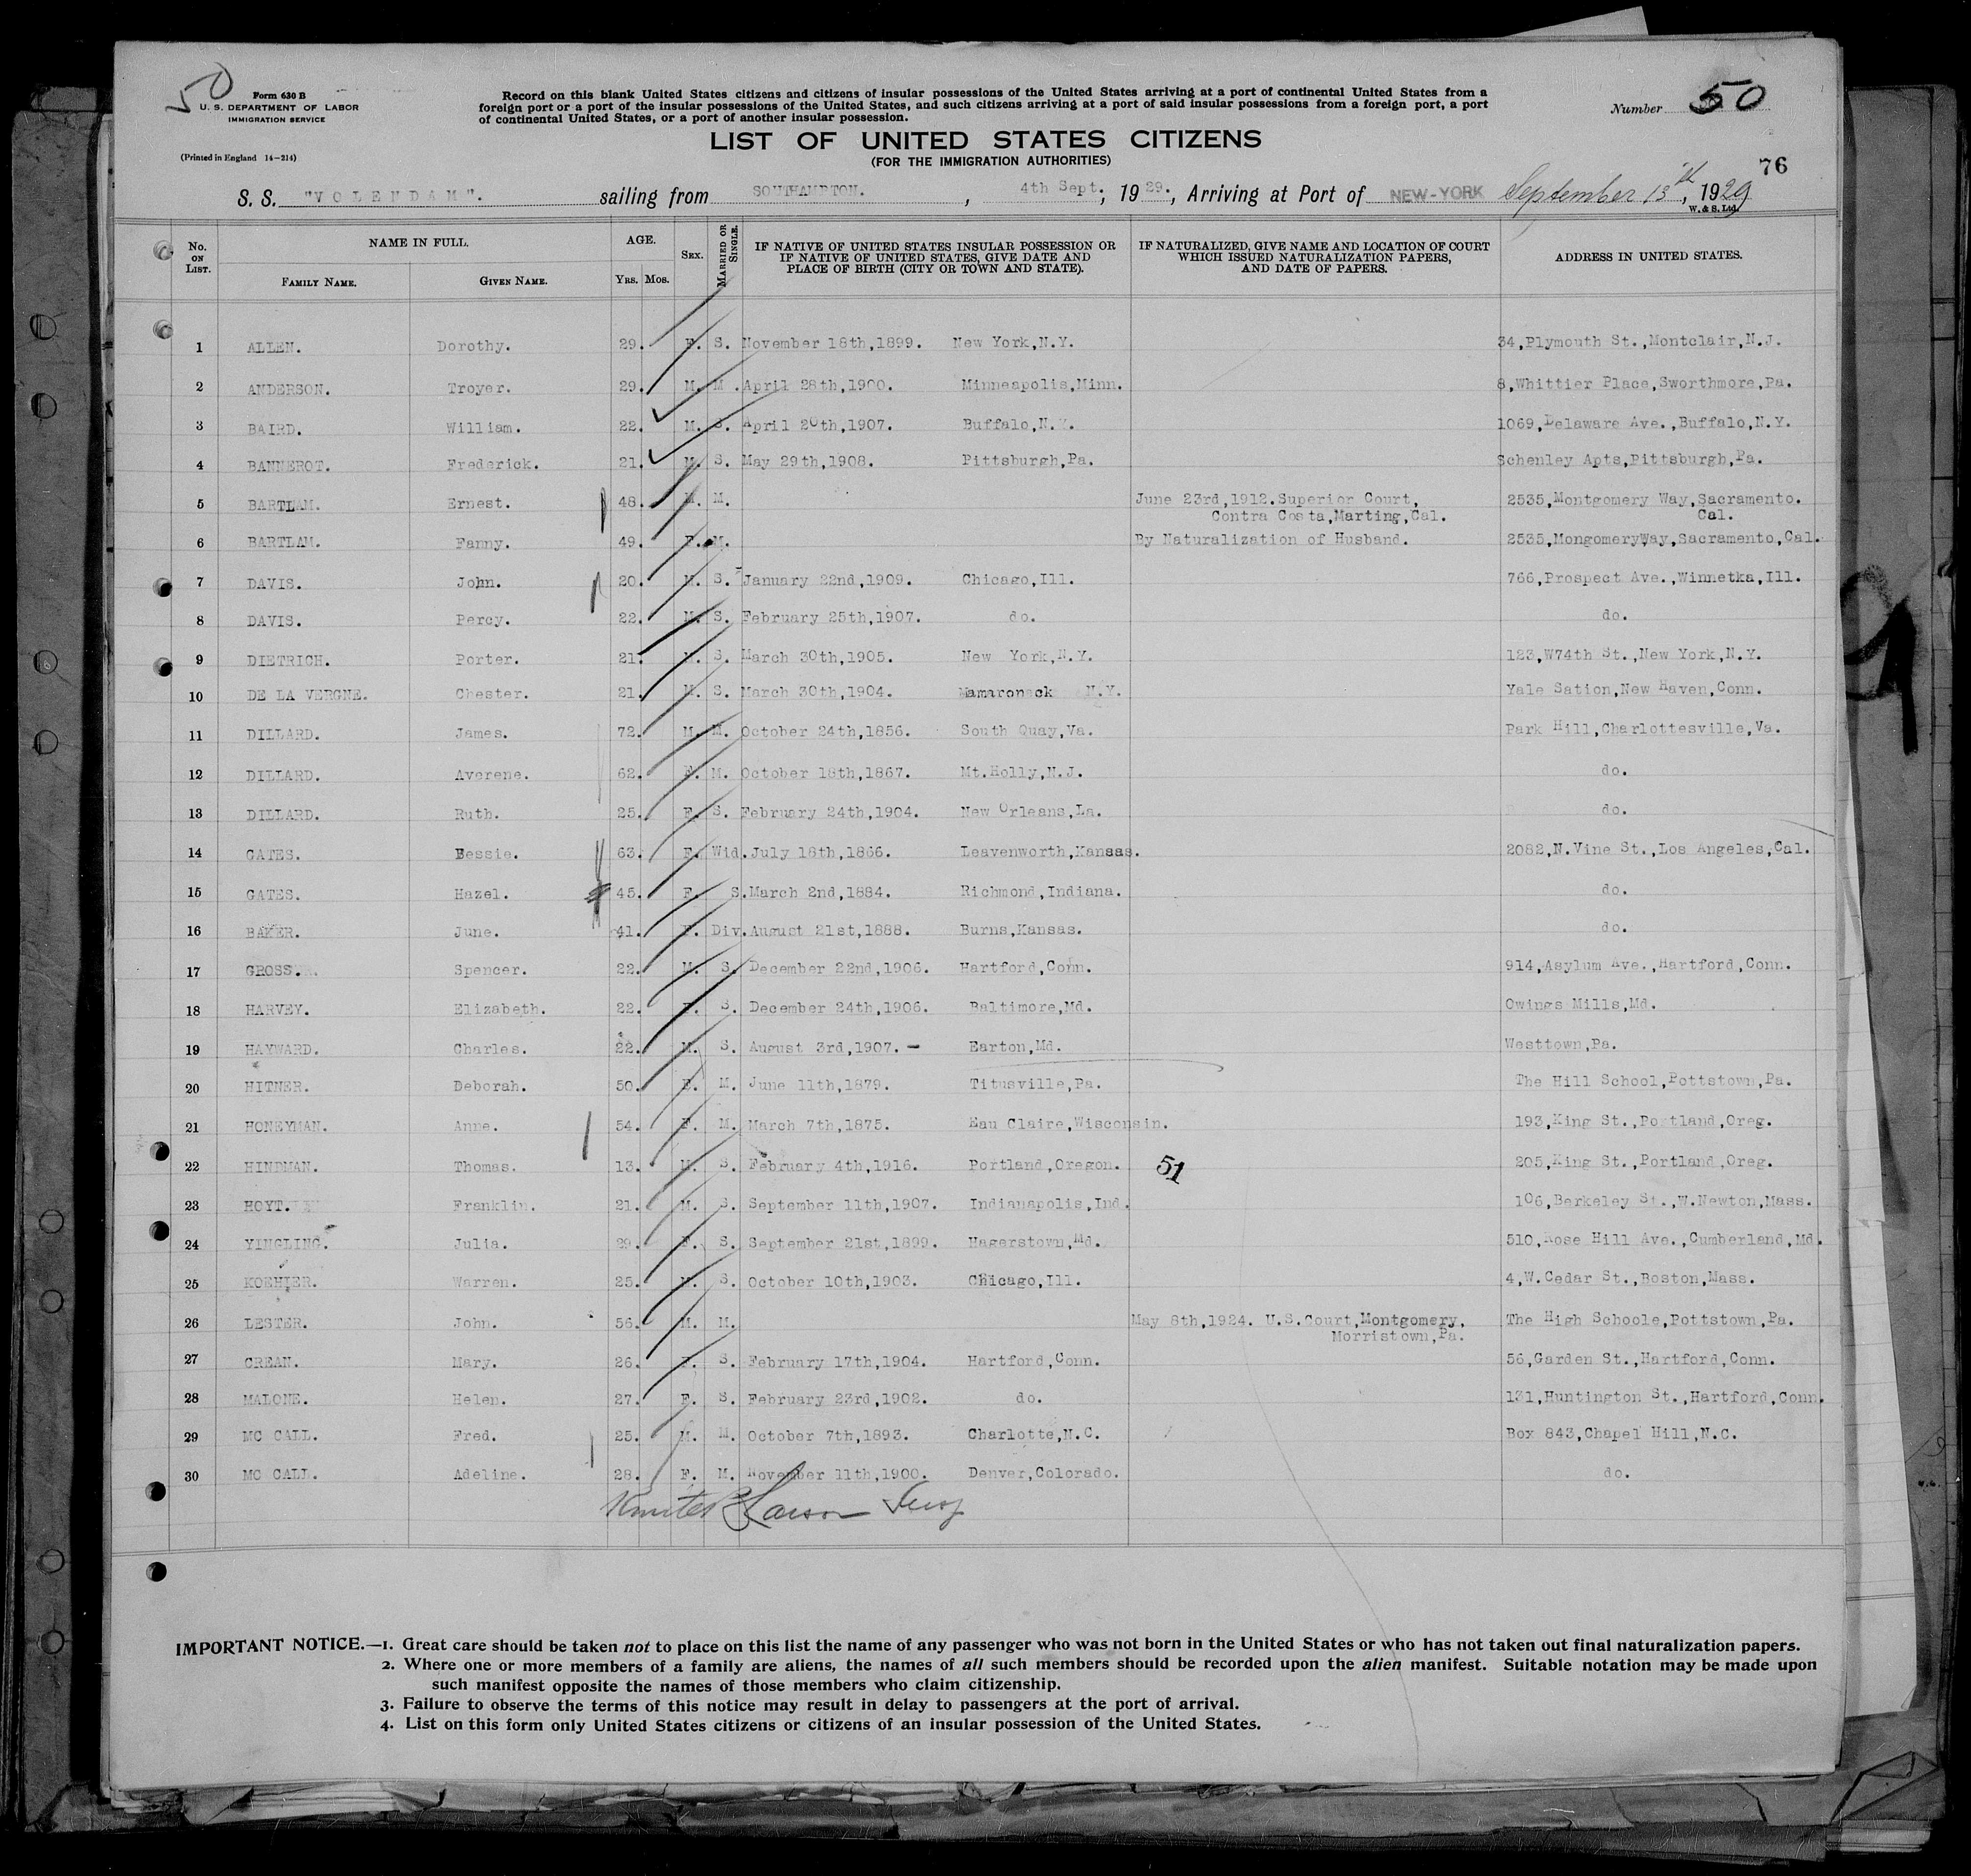 50
Form 630 B
U. S. DEPARTMENT OF LABOR
IMMIGRATION SERVICE
(Printed in England 14-214)
Record on this blank United States citizens and citizens of insular possessions of the United States arriving at a port of continental United States from a
foreign port or a port of the insular possessions of the United States, and such citizens arriving at a port of said insular possessions from a foreign port, a port
of continental United States, or a port of another insular possession.
Number 50
LIST OF UNITED STATES CITIZENS
(FOR THE IMMIGRATION AUTHORITIES)
76
S. S. "VOLENDAM". sailing from SOUTHAMPTON. , 4th Sept; 1929; Arriving at Port of NEW-YORK September 13th, 1929
W. & S. Ltd.
No. ON LIST. NAME IN FULL. FAMILY NAME. GIVEN NAME. AGE. YRS. MOS. SEX. MARRIED OR SINGLE. IF NATIVE OF UNITED STATES INSULAR POSSESSION OR IF NATIVE OF UNITED STATES, GIVE DATE AND PLACE OF BIRTH (CITY OR TOWN AND STATE). IF NATURALIZED, GIVE NAME AND LOCATION OF COURT WHICH ISSUED NATURALIZATION PAPERS, AND DATE OF PAPERS. ADDRESS IN UNITED STATES.
1 ALLEN. Dorothy. 29. F. S. November 18th,1899. New York,N.Y. 34,Plymouth St.,Montclair,N.J.
2 ANDERSON. Troyer. 29. M. M. April 28th,1900. Minneapolis,Minn. 8,Whittier Place,Sworthmore,Pa.
3 BAIRD. William. 22. M. S. April 20th,1907. Buffalo,N.Y. 1069,Delaware Ave.,Buffalo,N.Y.
4 BANNEROT. Frederick. 21. M. S. May 29th,1908. Pittsburgh,Pa. Schenley Apts,Pittsburgh,Pa.
5 BARTLAM. Ernest. 48. M. M. June 23rd,1912.Superior Court, 2535,Montgomery Way,Sacramento.
Contra Costa,Marting,Cal. Cal.
6 BARTLAM. Fanny. 49. F. M. By Naturalization of Husband. 2535,MongomeryWay,Sacramento,Cal.
7 DAVIS. John. 20. M. S. January 22nd,1909. Chicago,Ill. 766,Prospect Ave.,Winnetka,Ill.
8 DAVIS. Percy. 22. M. S. February 25th,1907. do. do.
9 DIETRICH. Porter. 21. M. S. March 30th,1905. New York,N.Y. 123,W74th St.,New York,N.Y.
10 DE LA VERGNE. Chester. 21. M. S. March 30th,1904. Mamaroneck N.Y. Yale Sation,New Haven,Conn.
11 DILLARD. James. 72. M. M. October 24th,1856. South Quay,Va. Park Hill,Charlottesville,Va.
12 DILLARD. Averene. 62. F. M. October 18th,1867. Mt.Holly,N.J. do.
13 DILLARD. Ruth. 25. F. S. February 24th,1904. New Orleans,La. do.
14 GATES. Bessie. 63. F. Wid. July 18th,1866. Leavenworth,Kansas. 2082,N.Vine St.,Los Angeles,Cal.
15 GATES. Hazel. 45. F. S. March 2nd,1884. Richmond,Indiana. do.
16 BAKER. June. 41. F. Div. August 21st,1888. Burns,Kansas. do.
17 GROSS. Spencer. 22. M. S. December 22nd,1906. Hartford,Conn. 914,Asylum Ave.,Hartford,Conn.
18 HARVEY. Elizabeth. 22. F. S. December 24th,1906. Baltimore,Md. Owings Mills,Md.
19 HAYWARD. Charles. 22. M. S. August 3rd,1907. - Earton,Md. Westtown,Pa.
20 HITNER. Deborah. 50. F. M. June 11th,1879. Titusville,Pa. The Hill School,Pottstown,Pa.
21 HONEYMAN. Anne. 54. F. M. March 7th,1875. Eau Claire,Wisconsin. 193,King St.,Portland,Oreg.
22 HINDMAN. Thomas. 13. M. S. February 4th,1916. Portland,Oregon. 51 205,King St.,Portland,Oreg.
23 HOYT. Franklin. 21. M. S. September 11th,1907. Indianapolis,Ind. 106,Berkeley St.,W.Newton,Mass.
24 YINGLING. Julia. 29. F. S. September 21st,1899. Hagerstown,Md. 510,Rose Hill Ave.,Cumberland,Md.
25 KOEHIER. Warren. 25. M. S. October 10th,1903. Chicago,Ill. 4,W.Cedar St.,Boston,Mass.
26 LESTER. John. 56. M. M. May 8th,1924. U.S.Court,Montgomery, The High Schoole,Pottstown,Pa.
Morristown,Pa.
27 CREAN. Mary. 26. F. S. February 17th,1904. Hartford,Conn. 56,Garden St.,Hartford,Conn.
28 MALONE. Helen. 27. F. S. February 23rd,1902. do. 131,Huntington St.,Hartford,Conn.
29 MC CALL. Fred. 25. M. M. October 7th,1893. Charlotte,N.C. Box 843,Chapel Hill,N.C.
30 MC CALL. Adeline. 28. F. M. November 11th,1900. Denver,Colorado. do.
Larson Insp
IMPORTANT NOTICE.—1. Great care should be taken not to place on this list the name of any passenger who was not born in the United States or who has not taken out final naturalization papers.
2. Where one or more members of a family are aliens, the names of all such members should be recorded upon the alien manifest. Suitable notation may be made upon
such manifest opposite the names of those members who claim citizenship.
3. Failure to observe the terms of this notice may result in delay to passengers at the port of arrival.
4. List on this form only United States citizens or citizens of an insular possession of the United States.